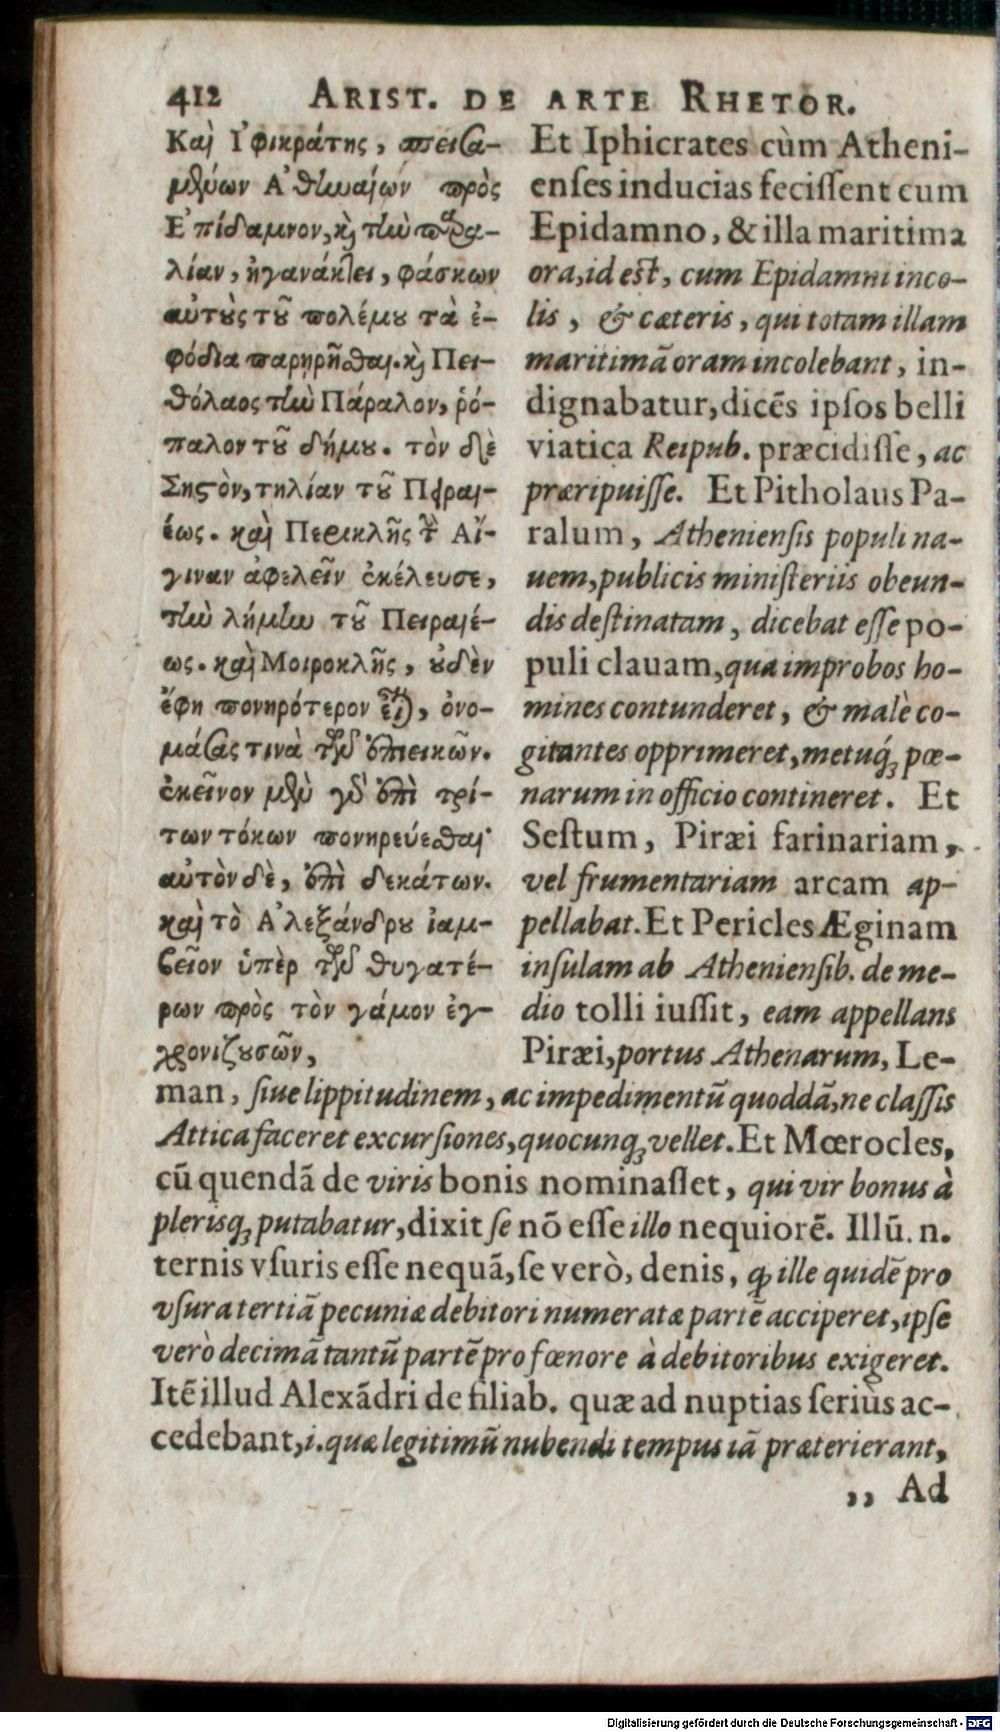 412 ARIST. DE ARTE RHETOR.
Καὶ Ἰφικράτης, σπεισα-
μένων Ἀθηναίων πρὸς
Ἐπίδαμνον, καὶ τὴν παρα-
λίαν, ἠγανάκτει, φάσκων
αὐτοὺς τοῦ πολέμου τὰ ἐ-
φόδια παρηρῆσθαι. καὶ Πει-
θόλαος τὴν Πάραλον, ῥό-
παλον τοῦ δήμου. τὸν δὲ
Σηστὸν, τηλίαν τοῦ Πειραι-
έως. καὶ Περικλῆς τὴν Αἴ-
γιναν ἀφελεῖν ἐκέλευσε,
τὴν λήμην τοῦ Πειραιέ-
ως. καὶ Μοιροκλῆς, οὐδὲν
ἔφη πονηρότερον εἶναι, ὀνο-
μάσας τινὰ τῶν ἐπιεικῶν.
ἐκεῖνον μὲν γὰρ ἐπὶ τρί-
των τόκων πονηρεύεσθαι·
αὐτὸν δὲ, ἐπὶ δεκάτων.
καὶ τὸ Ἀλεξάνδρου ἰαμ-
βεῖον ὑπὲρ τῶν θυγατέ-
ρων πρὸς τὸν γάμον ἐγ-
χρονιζουσῶν,
Et Iphicrates cùm Atheni-
enses inducias fecissent cum
Epidamno, & illa maritima
ora, id est, cum Epidamni inco-
lis, & cæteris, qui totam illam
maritimā oram incolebant, in-
dignabatur, dicēs ipsos belli
viatica Reipub. præcidisse, ac
præripuisse. Et Pitholaus Pa-
ralum, Atheniensis populi na-
uem, publicis ministeriis obeun-
dis destinatam, dicebat esse po-
puli clauam, qua improbos ho-
mines contunderet, & malè co-
gitantes opprimeret, metuq́; pœ-
narum in officio contineret. Et
Sestum, Piræi farinariam,
vel frumentariam arcam ap-
pellabat. Et Pericles Æginam
insulam ab Atheniensib. de me-
dio tolli iussit, eam appellans
Piræi, portus Athenarum, Le-
man, siue lippitudinem, ac impedimentū quoddā, ne classis
Attica faceret excursiones, quocunq; vellet. Et Mœrocles,
cū quendā de viris bonis nominasset, qui vir bonus à
plerisq; putabatur, dixit se nō esse illo nequiorē. Illū. n.
ternis vsuris esse nequā, se verò, denis, ꝙ ille quidē pro
vsura tertiā pecuniæ debitori numeratæ partē acciperet, ipse
verò decimā tantū partē pro fœnore à debitoribus exigeret.
Itē illud Alexādri de filiab. quæ ad nuptias seriùs ac-
cedebant, i. quæ legitimū nubendi tempus iā præterierant,
,, Ad
Digitalisierung gefördert durch die Deutsche Forschungsgemeinschaft - DFG